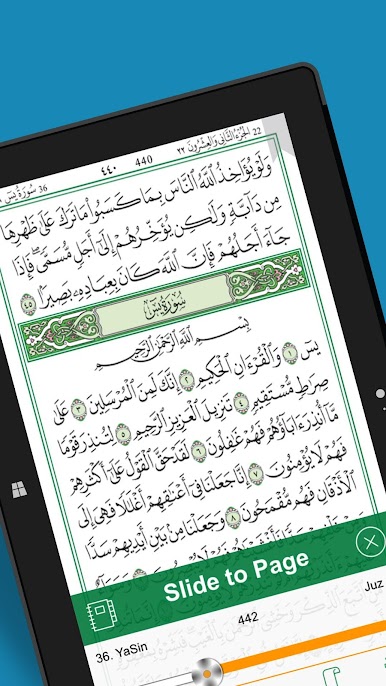 22 الجزء الثاني والعشرون ٢٢
٤٤٠ 440
36 سورة يس
وَلَوْ يُؤَاخِذُ ٱللَّهُ ٱلنَّاسَ بِمَا كَسَبُوا۟ مَا تَرَكَ عَلَىٰ ظَهْرِهَا
مِن دَآبَّةٍ وَلَٰكِن يُؤَخِّرُهُمْ إِلَىٰٓ أَجَلٍ مُّسَمًّى فَإِذَا
جَآءَ أَجَلُهُمْ فَإِنَّ ٱللَّهَ كَانَ بِعِبَادِهِۦ بَصِيرًۢا ٤٥
سُورَةُ يسٓ
بِسْمِ ٱللَّهِ ٱلرَّحْمَٰنِ ٱلرَّحِيمِ
يسٓ ١ وَٱلْقُرْءَانِ ٱلْحَكِيمِ ٢ إِنَّكَ لَمِنَ ٱلْمُرْسَلِينَ ٣ عَلَىٰ
صِرَٰطٍ مُّسْتَقِيمٍ ٤ تَنزِيلَ ٱلْعَزِيزِ ٱلرَّحِيمِ ٥ لِتُنذِرَ قَوْمًا
مَّآ أُنذِرَ ءَابَآؤُهُمْ فَهُمْ غَٰفِلُونَ ٦ لَقَدْ حَقَّ ٱلْقَوْلُ عَلَىٰٓ أَكْثَرِهِمْ
فَهُمْ لَا يُؤْمِنُونَ ٧ إِنَّا جَعَلْنَا فِىٓ أَعْنَٰقِهِمْ أَغْلَٰلًا فَهِىَ إِلَى
ٱلْأَذْقَانِ فَهُم مُّقْمَحُونَ ٨ وَجَعَلْنَا مِنۢ بَيْنِ أَيْدِيهِمْ سَدًّا
Slide to Page
36. YaSin
442
Juz